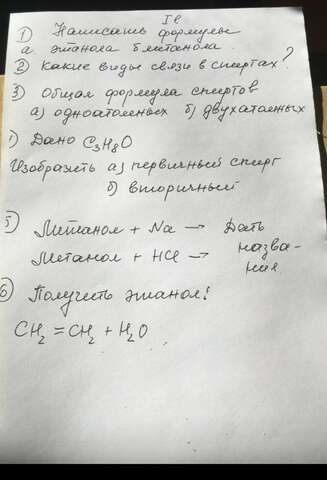 Iв
1) Написать формулы
а. этанола б. метанола.
2) Какие виды связи в спиртах?
3) Общая формула спиртов
а) одноатомных б) двухатомных
) Дано C3H8O
Изобразить а) первичный спирт
б) вторичный
5) Метанол + Na → Дать
Метанол + HCl → назва-
ния
6) Получить этанол!
CH2 = CH2 + H2O